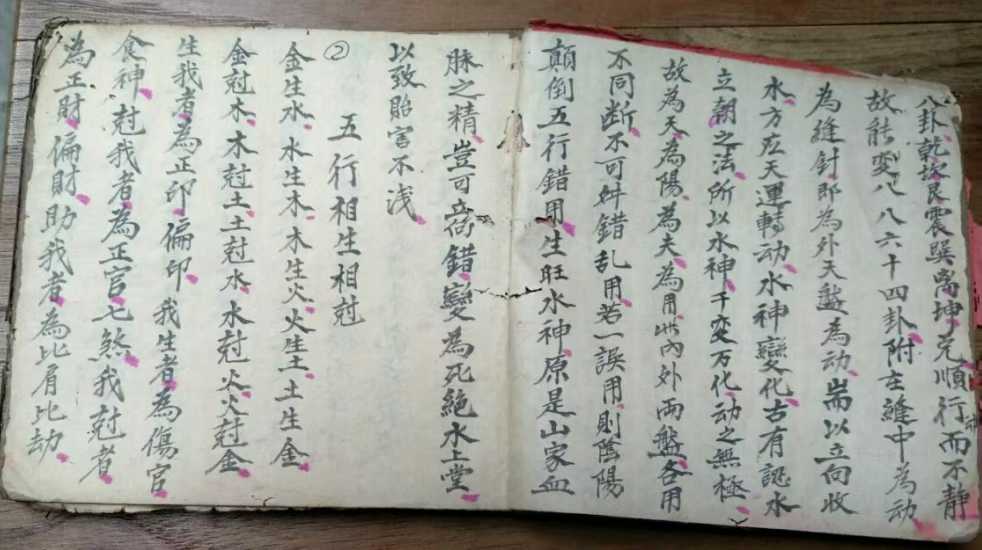 八卦乾坎艮震巽离坤兑順行而不静
故能变八八六十四卦附在縫中为动
为縫針即为外天盤为动耑以立向收
水方位天運轉动水神變化古有認水
立朝之法所以水神千变万化动之無極
故为天为陽为夫为用此内外兩盤各用
不同断不可舛錯乱用若一誤用則陰陽
顛倒五行錯用生旺水神原是山家血
脉之精豈可立向錯變为死絶水上堂
以致貽害不浅
② 五行相生相尅
金生水水生木木生火火生土土生金
金尅木木尅土土尅水水尅火火尅金
生我者为正印偏印我生者为傷官
食神尅我者为正官七煞我尅者
为正財偏財助我者为比肩比劫